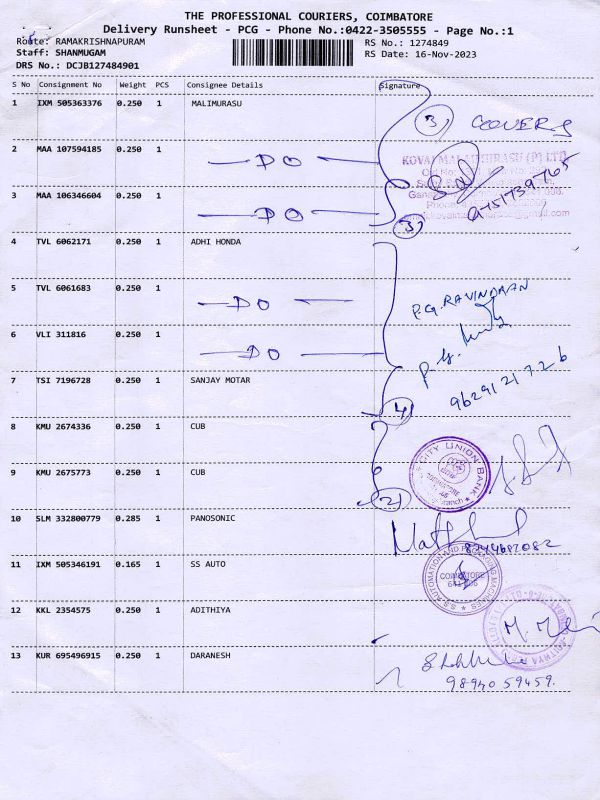 THE PROFESSIONAL COURIERS, COIMBATORE
Delivery Runsheet - PCG - Phone No.:0422-3505555 - Page No.:1
Route: RAMAKRISHNAPURAM RS No.: 1274849
Staff: SHANMUGAM RS Date: 16-Nov-2023
DRS No.: DCJB127484901
S No Consignment No Weight PCS Consignee Details Signature
1 IXM 505363376 0.250 1 MALIMURASU
3) COVERS
2 MAA 107594185 0.250 1 — DO —
KOVAI MALAIMURASU (P) LTD
9751739765
3 MAA 106346604 0.250 1 — DO — (3)
4 TVL 6062171 0.250 1 ADHI HONDA
5 TVL 6061683 0.250 1 — DO —
P.G. RAVINDRAN
6 VLI 311816 0.250 1 — DO —
7 TSI 7196728 0.250 1 SANJAY MOTAR
9629121726
(4)
8 KMU 2674336 0.250 1 CUB
CITY UNION BANK
9 KMU 2675773 0.250 1 CUB
(2)
10 SLM 332800779 0.285 1 PANOSONIC
11 IXM 505346191 0.165 1 SS AUTO
S.S AUTOMATION AND PACKAGING MACHINES
COIMBATORE
12 KKL 2354575 0.250 1 ADITHIYA
13 KUR 695496915 0.250 1 DARANESH
98940 59459.